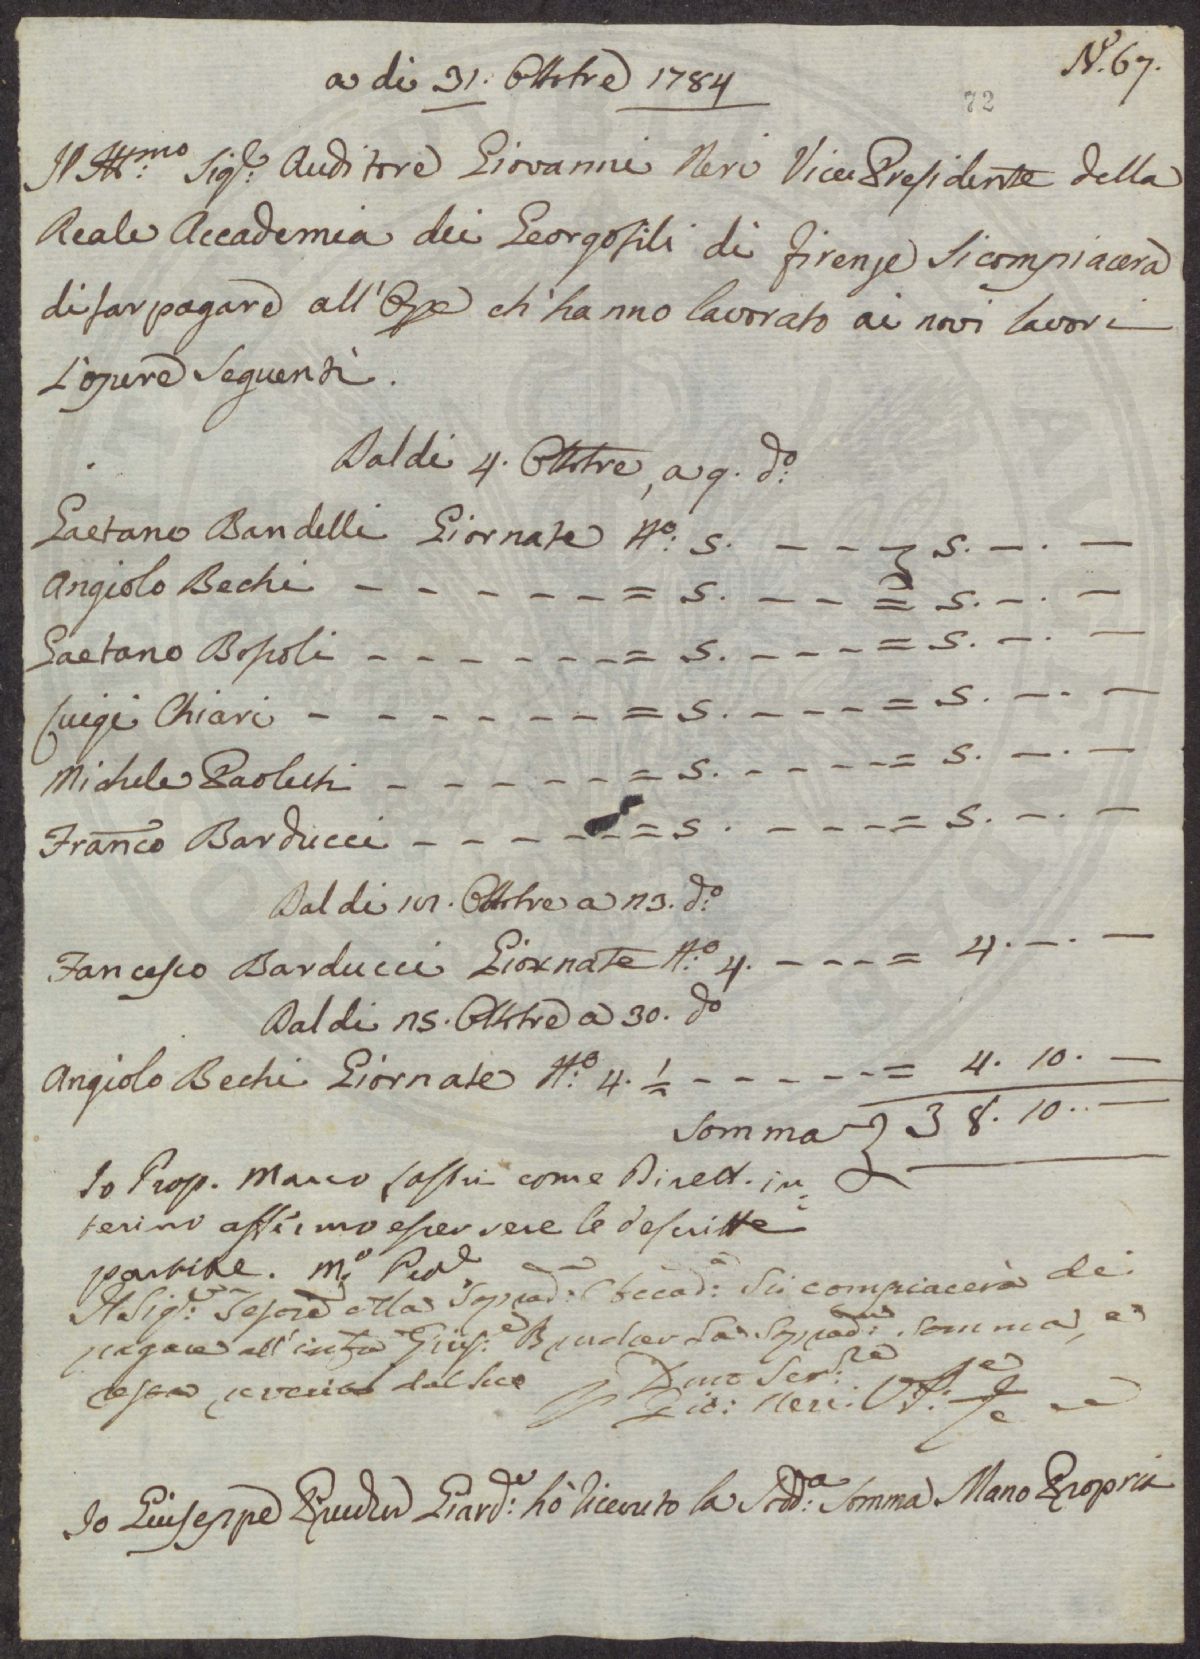 N.° 67.
a di 31. Ottobre 1784
72
Il Ill:mo Sig:e Auditore Giovanni Neri Vice Presidente della
Reale Accademia dei Georgofili di Firenze Si compiacera
di far pagare all'Ope ch'hanno lavorato ai novi lavori
L'opere Seguenti.
Dal di 4. Ottobre, a 9. d:o
Gaetano Bandelli Giornate N:o 5. - - - 5. -. -
Angiolo Bechi - - - - - - = 5. - - - = 5. -. -
Gaetano Bopoli - - - - - - = 5. - - - - = 5. -. -
Luigi Chiari - - - - - - - = 5. - - - - = 5. -. -
Michele Paoletti - - - - - - = 5. - - - - = 5. -. -
Franco Barducci - - - - - - = 5. - - - - = 5. -. -
Dal di 11. Ottobre a 23. d:o
Fancesco Barducci Giornate N:o 4. - - - = 4. -. -
Dal di 25. Ottobre a 30. do
Angiolo Bechi Giornate N:o 4. 1/2 - - - - - = 4. 10. -
Somma 38. 10.. -
Io Prop. Marco Lastri come Dirett. in
terino affermo esser vere le descritte
partite. M:o Pro
Il Sig:e Tesore della Soprad:a Accad:a Si compiacerà di
pagare all' Giuse:e la Soprad:a Somma, e
Gio: Neri: V. P:
Io Giuseppe Giard:e hò ricevuto la Sudd:a Somma Mano Propria